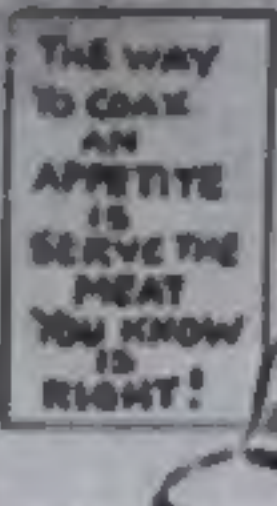 THE WAY
TO COAX
AN
APPETITE
IS
SERVE THE
MEAT
YOU KNOW
IS
RIGHT!